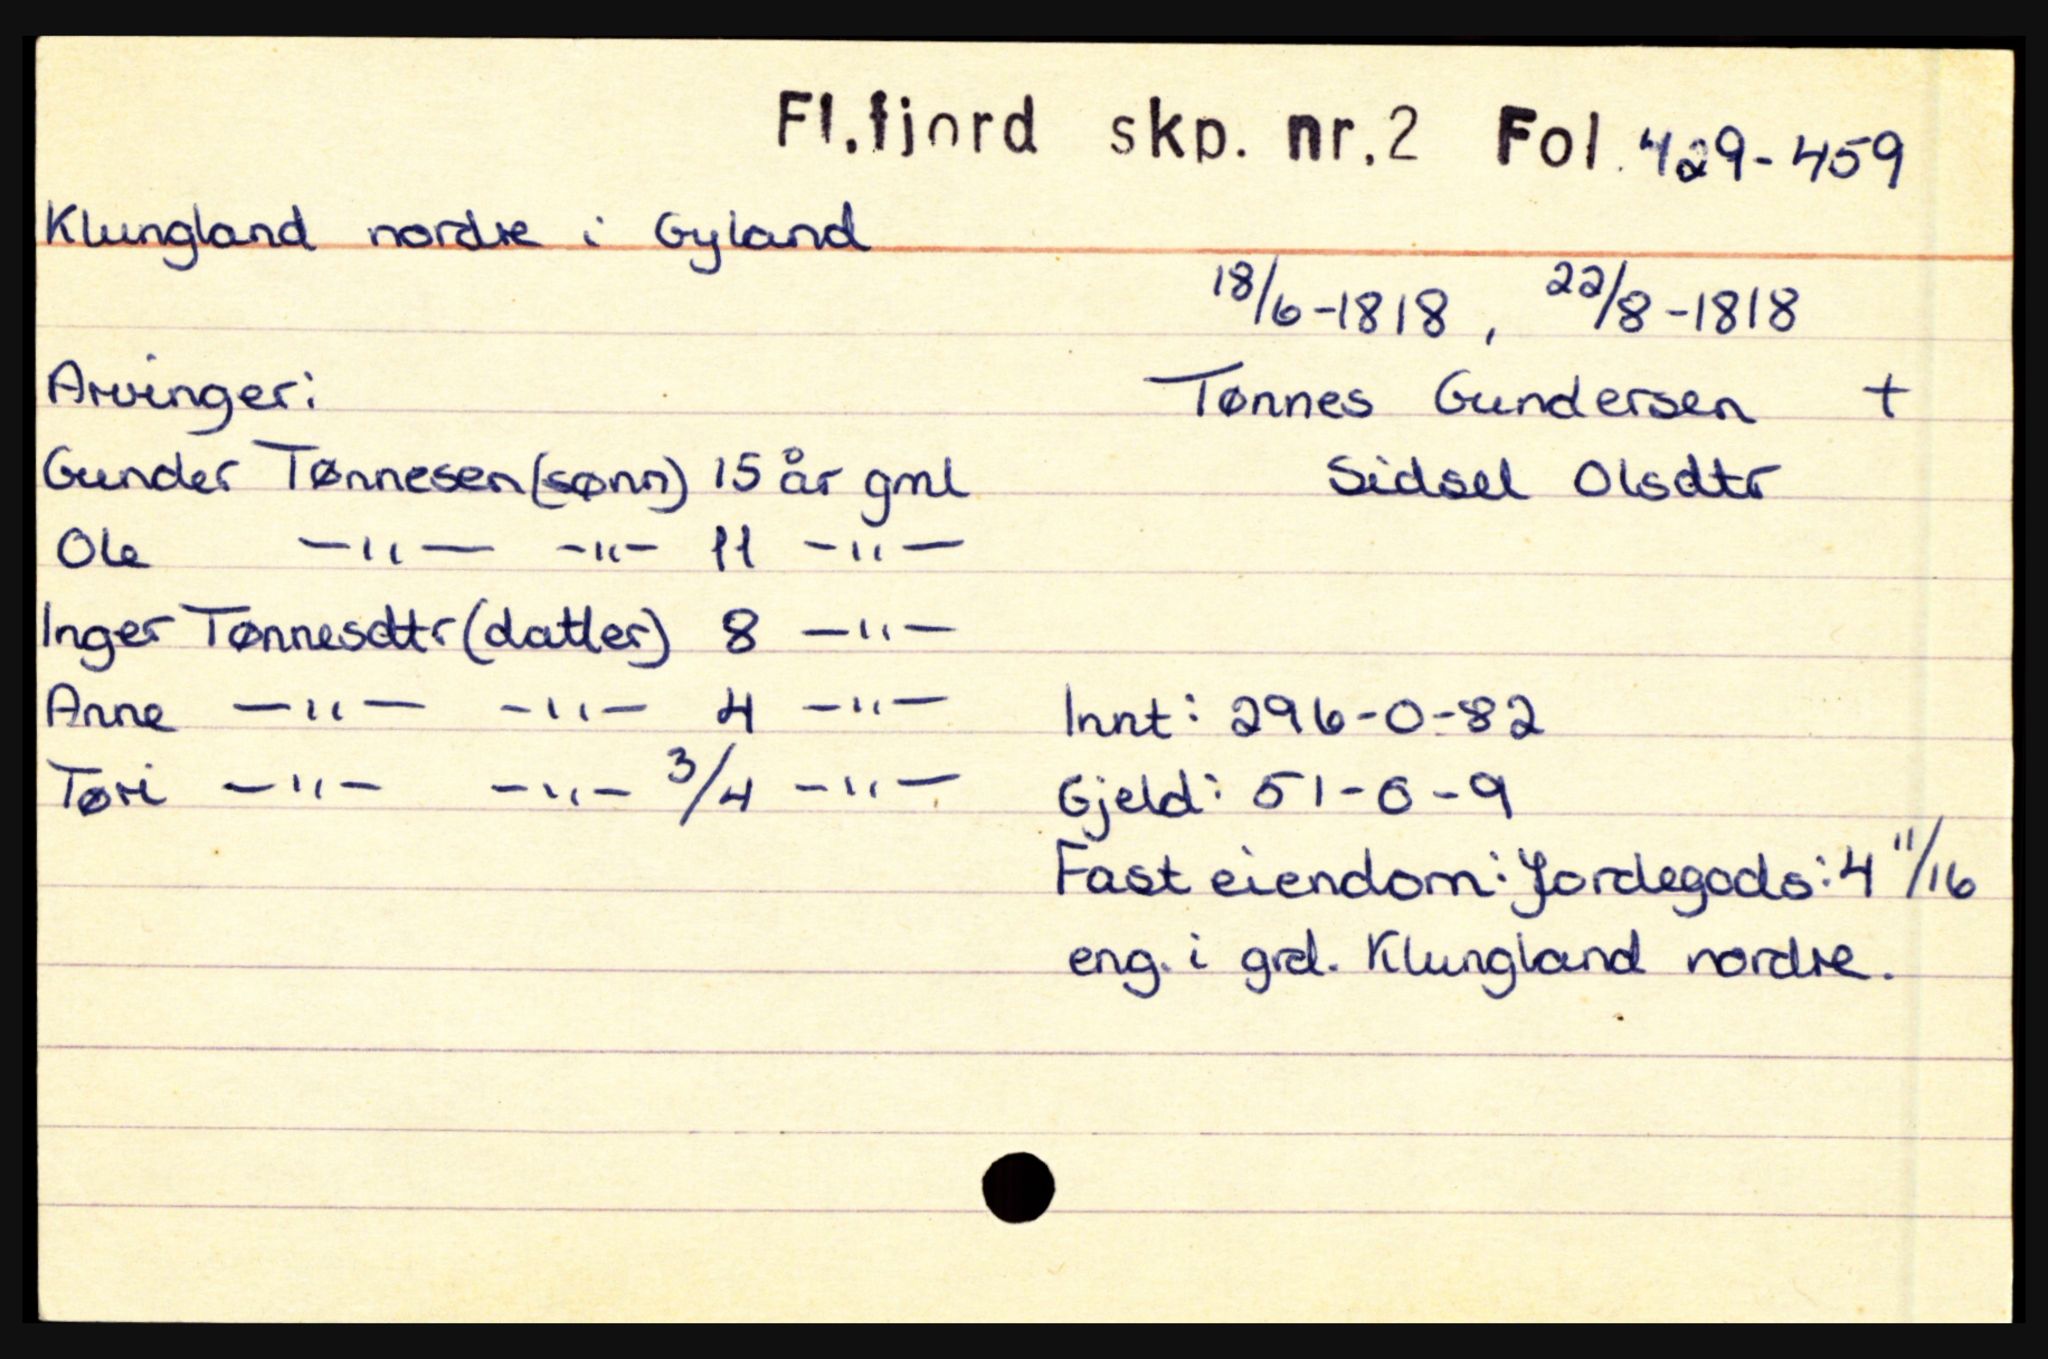 Fl.fjord skp. nr.2 Fol. 429-459
Klungland nordre i Gyland
18/6-1818, 22/8-1818
Arvinger:
Tønnes Gundersen +
Gunder Tønnesen (sønn) 15 år gml
Sidsel Olsdtr
Ole —"— -"- 11 -"—
Inger Tønnesdtr (datter) 8 —"—
Anne —"— -"- 4 -"—
Innt: 296-0-82
Tøri —"- -"- 3/4 -"—
Gjeld: 51-0-9
Fast eiendom: Jordegods: 4 11/16
eng. i grd. Klungland nordre.